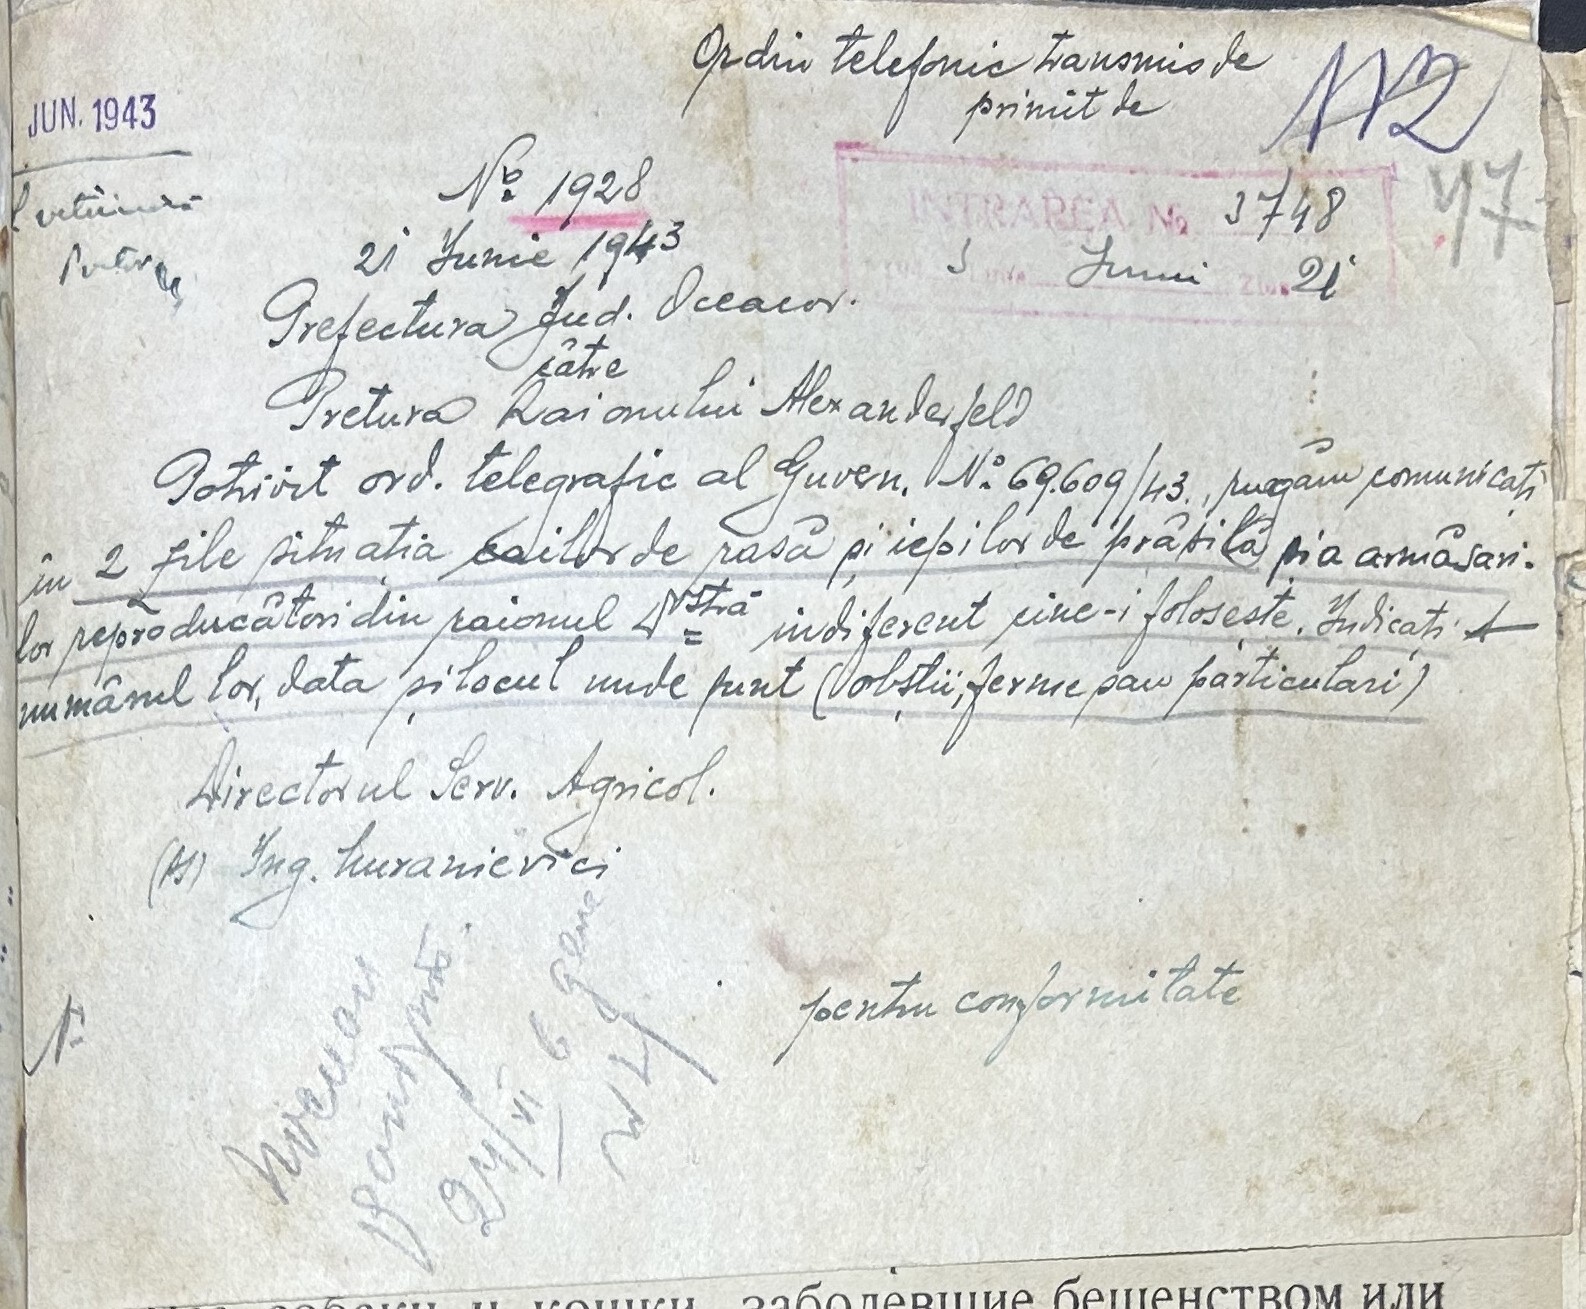 Ordin telefonic transmis de
primit de
112
47
JUN. 1943
No. 1928
INTRAREA No 3748
21 Iunie 1943
Iunie 21
Prefectura Jud. Oceacov.
către
Pretura Raionului Alexanderfeld
Potrivit ord. telegrafic al Guvern. No. 69.609/43., rugăm comunicați
în 2 zile situatia cailor de rasă și iepilor de prăsilă și a armăsari-
lor reproducători din raionul Dvstră indiferent cine-i folosește. Indicați
numărul lor, data și locul unde sunt (obștii, ferme sau particulari)
Directorul Serv. Agricol.
(ss) Ing. Muranievici
pentru conformitate
24/VI
заболевшие бешенством или